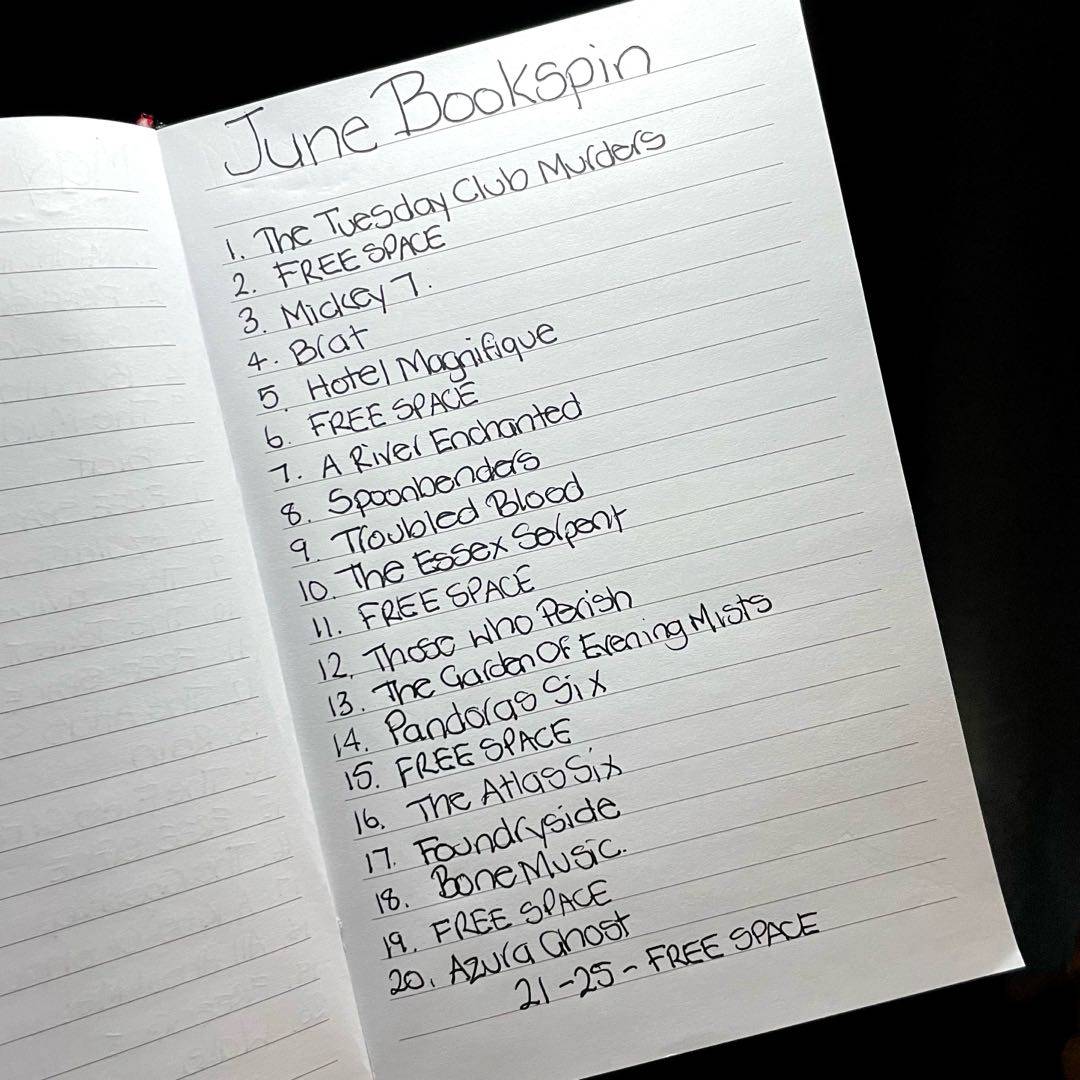 June Bookspin
1. The Tuesday Club Murders
2. FREE SPACE
3. Mickey 7.
4. Brat
5. Hotel Magnifique
6. FREE SPACE
7. A River Enchanted
8. Spoonbenders
9. Troubled Blood
10. The Essex Serpent
11. FREE SPACE
12. Those who Perish
13. The Garden Of Evening Mists
14. Pandoras Six
15. FREE SPACE
16. The Atlas Six
17. Foundryside
18. Bone Music.
19. FREE SPACE
20. Azura Ghost
21-25 - FREE SPACE